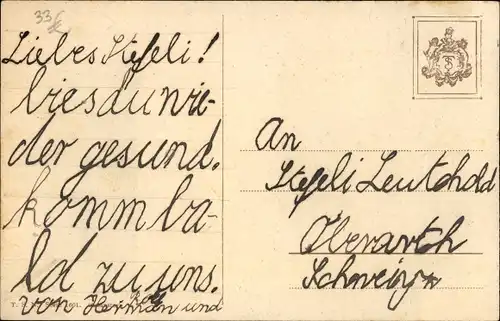 33
Liebes Stefeli!
biesdu wie-
der gesund.
komm ba-
ld zu uns.
von Herman und
T. S. N.
TS
An
Stefeli Leuthold
Oberarth
Schweiz